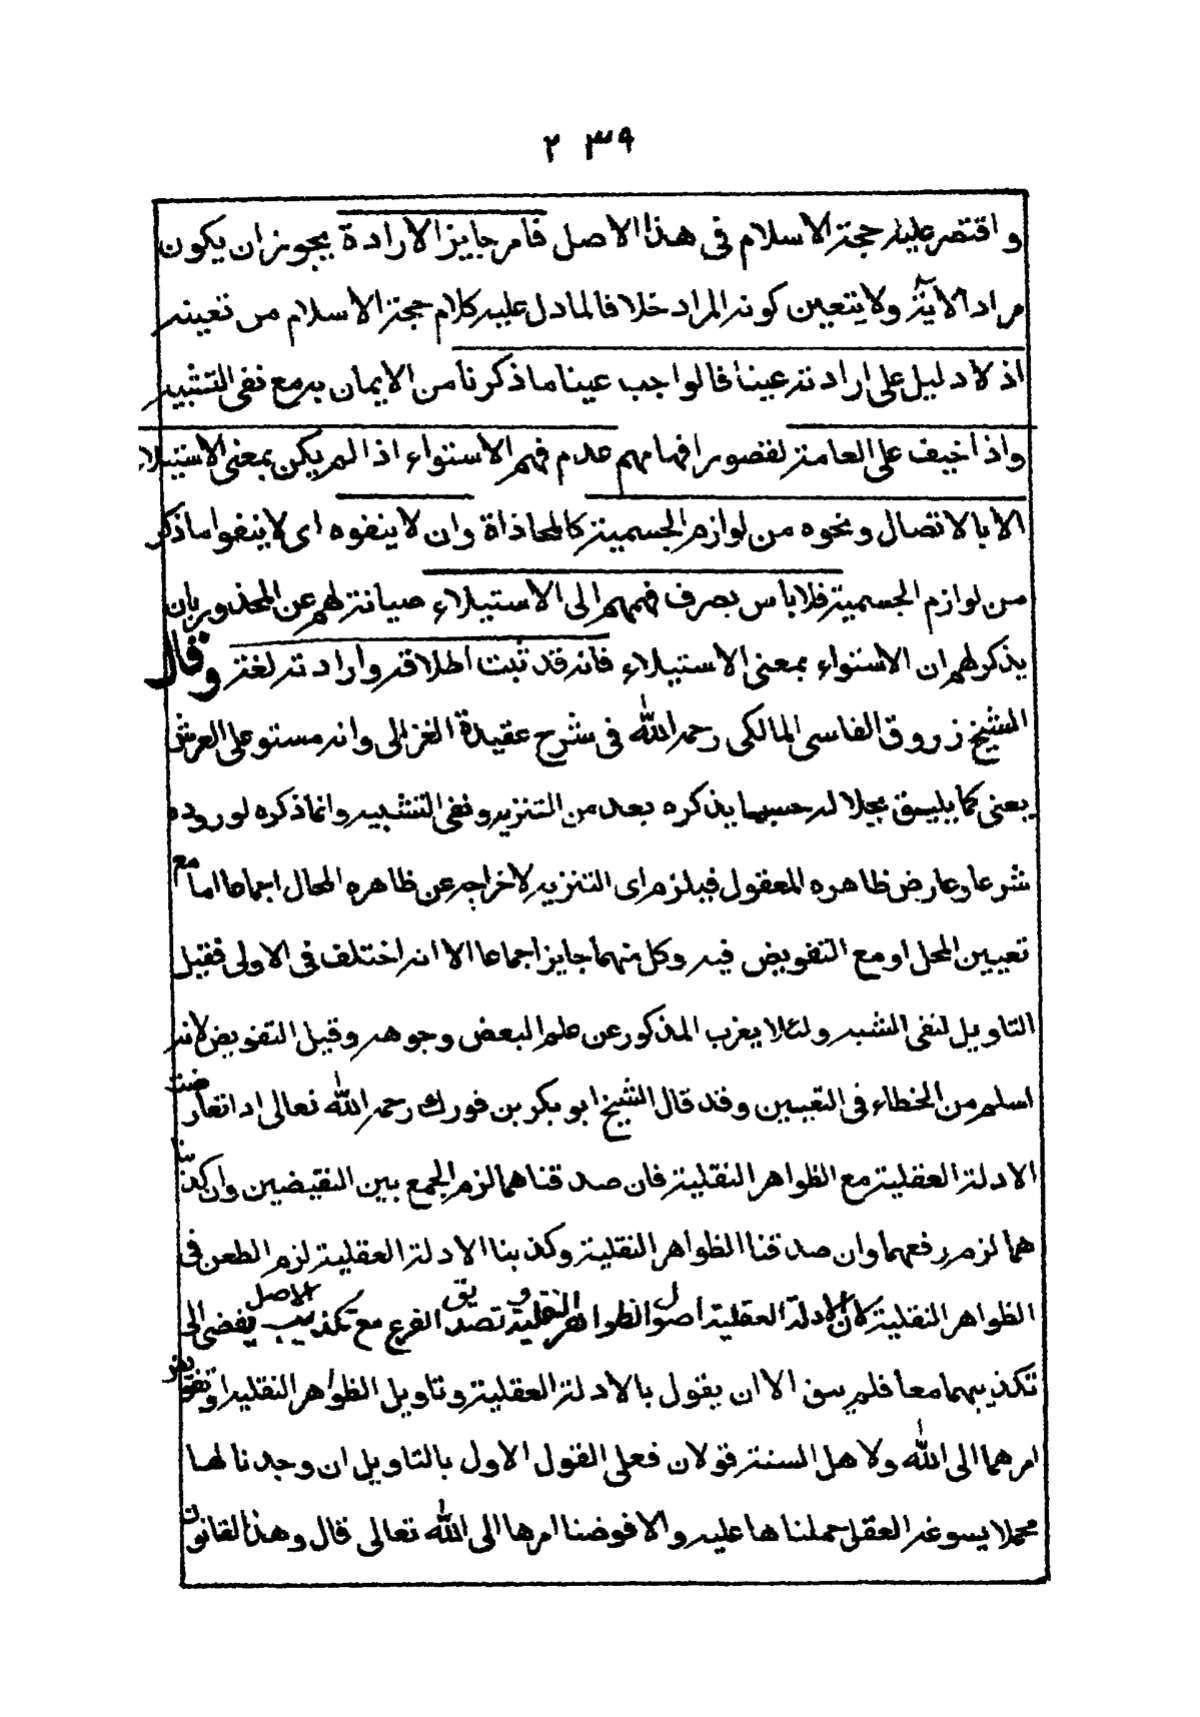 ٢٣٩
واقتصر عليه حجة الاسلام فى هذا الاصل فامر جايز الارادة يجوز ان يكون
مراد الاية ولا يتعين كونه المراد خلافا لما دل عليه كلام حجة الاسلام من تعينه
اذ لا دليل على ارادته عينا فالواجب عينا ما ذكرنا من الايمان به مع نفى التشبيه
واذا خيف على العامة لقصور افهامهم عدم فهم الاستواء اذا لم يكن بمعنى الاستيلاء
الا بالاتصال ونحوه من لوازم الجسمية كالمحاذاة وان لا ينفوه اى لا ينفوا ما ذكر
من لوازم الجسمية فلا باس بصرف فهمهم الى الاستيلاء صيانة لهم عن المحذور بان
يذكر لهم ان الاستواء بمعنى الاستيلاء فانه قد ثبت اطلاقه وارادته لغة وقال
الشيخ زروق الفاسى المالكى رحمه الله فى شرح عقيدة الغزالى وانه مستو على العرش
يعنى كما يليق بجلاله حسبما يذكره بعد من التنزيه ونفى التشبيه وانما ذكره لوروده
شرعا وعارض ظاهره المعقول فيلزم اى التنزيه لاخراجه عن ظاهره المحال اجماعا اما مع
تعيين المحل او مع التفويض فيه وكل منهما جايز اجماعا الا انه اختلف فى الاولى فقيل
التاويل لنفى الشبه ولئلا يعزب المذكور عن علم البعض وجوهه وقيل التفويض لانه
اسلم من الخطاء فى التعيين وقد قال الشيخ ابو بكر بن فورك رحمه الله تعالى اذا تعارضت
الادلة العقلية مع الظواهر النقلية فان صدقناهما لزم الجمع بين النقيضين وان كذبنا
هما لزم رفعهما وان صدقنا الظواهر النقلية وكذبنا الادلة العقلية لزم الطعن فى
الظواهر النقلية لان الادلة العقلية اصول الظواهر النقلية وتصديق الفرع مع تكذيب الاصل يفضى الى
تكذيبهما معا فلم يبق الا ان يقول بالادلة العقلية وتاويل الظواهر النقلية او تفويض
امرهما الى الله ولاهل السنة قولان فعلى القول الاول بالتاويل ان وجدنا لها
محملا يسوغه العقل حملناها عليه والا فوضنا امرها الى الله تعالى قال وهذا القانون